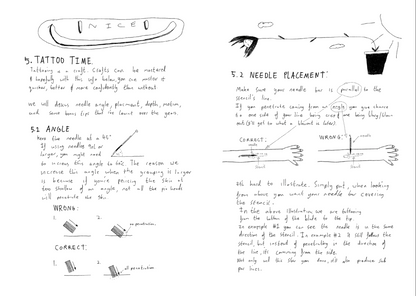 NICE
5. TATTOO TIME.
Tattooing is a craft. Crafts can be mastered
& hopefully with this info below you can master a
quicker, better & more confidently than without
we will discuss needle angle, placement, depth, motion,
and some basic tips that
5.1 ANGLE
Have the needle at a 45°
If using needle 9rl or
larger, you might need
to increase this angle to
The reason we
increase this angle when the grouping is larger
is because if you're pricing the skin at
too shallow of an angle, not all the
will penetrate the skin.
WRONG:
1.
2.
no penetration
CORRECT:
1.
2.
all penetration
5.2 NEEDLE PLACEMENT
Make sure your needle bar is parallel to the
stencil's line.
If you penetrate coming from an angle you give chance
to one side of your line being
CORRECT:
WRONG:
stencil
stencil
hard to illustrate. Simply put, when looking
from above you want your needle bar covering
the stencil.
In the above illustration we are tattooing
from the bottom of the
to the top
In example #1 you can see the needle is in the same
direction of the stencil. In example #2 it still follows the
stencil, but instead of penetrating in the direction of
the line, it's coming from the side.
Not only will this
you down, it'll also produce
lines.